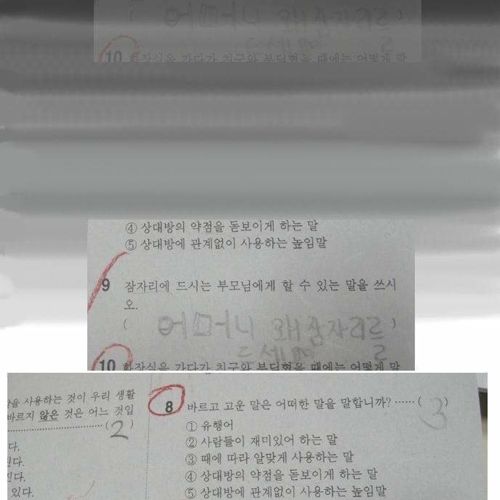 ( 어머니 왜잠자리르 )
드세요 ㄹ
10 화장실을 가다가 친구와 부딪혔을 때에는 어떻게 말
④ 상대방의 약점을 돋보이게 하는 말
⑤ 상대방에 관계없이 사용하는 높임말
9 잠자리에 드시는 부모님에게 할 수 있는 말을 쓰시
오.
( 어머니 왜잠자리르 )
드세요 ㄹ
10 화장실을 가다가 친구와 부딪혔을 때에는 어떻게 말
을 사용하는 것이 우리 생활
바르지 않은 것은 어느 것일
( 2 )
다.
다.
있다.
8 바르고 고운 말은 어떠한 말을 말합니까? ⋯⋯ ( 3 )
① 유행어
② 사람들이 재미있어 하는 말
③ 때에 따라 알맞게 사용하는 말
④ 상대방의 약점을 돋보이게 하는 말
⑤ 상대방에 관계없이 사용하는 높임말